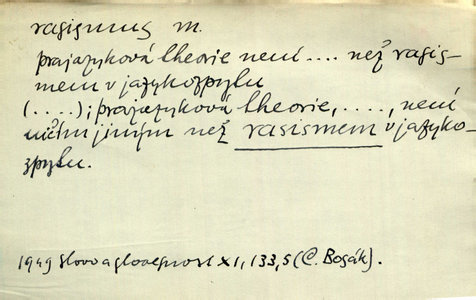 rasismus m.
prajazyková theorie není .... než rasis-
mem v jazykozpytu
(.....); prajazyková theorie, ...., není
ničím jiným než rasismem v jazyko-
zpytu.
1949 Slovo a slovesnost XI, 133, 5 (Č. Bosák).